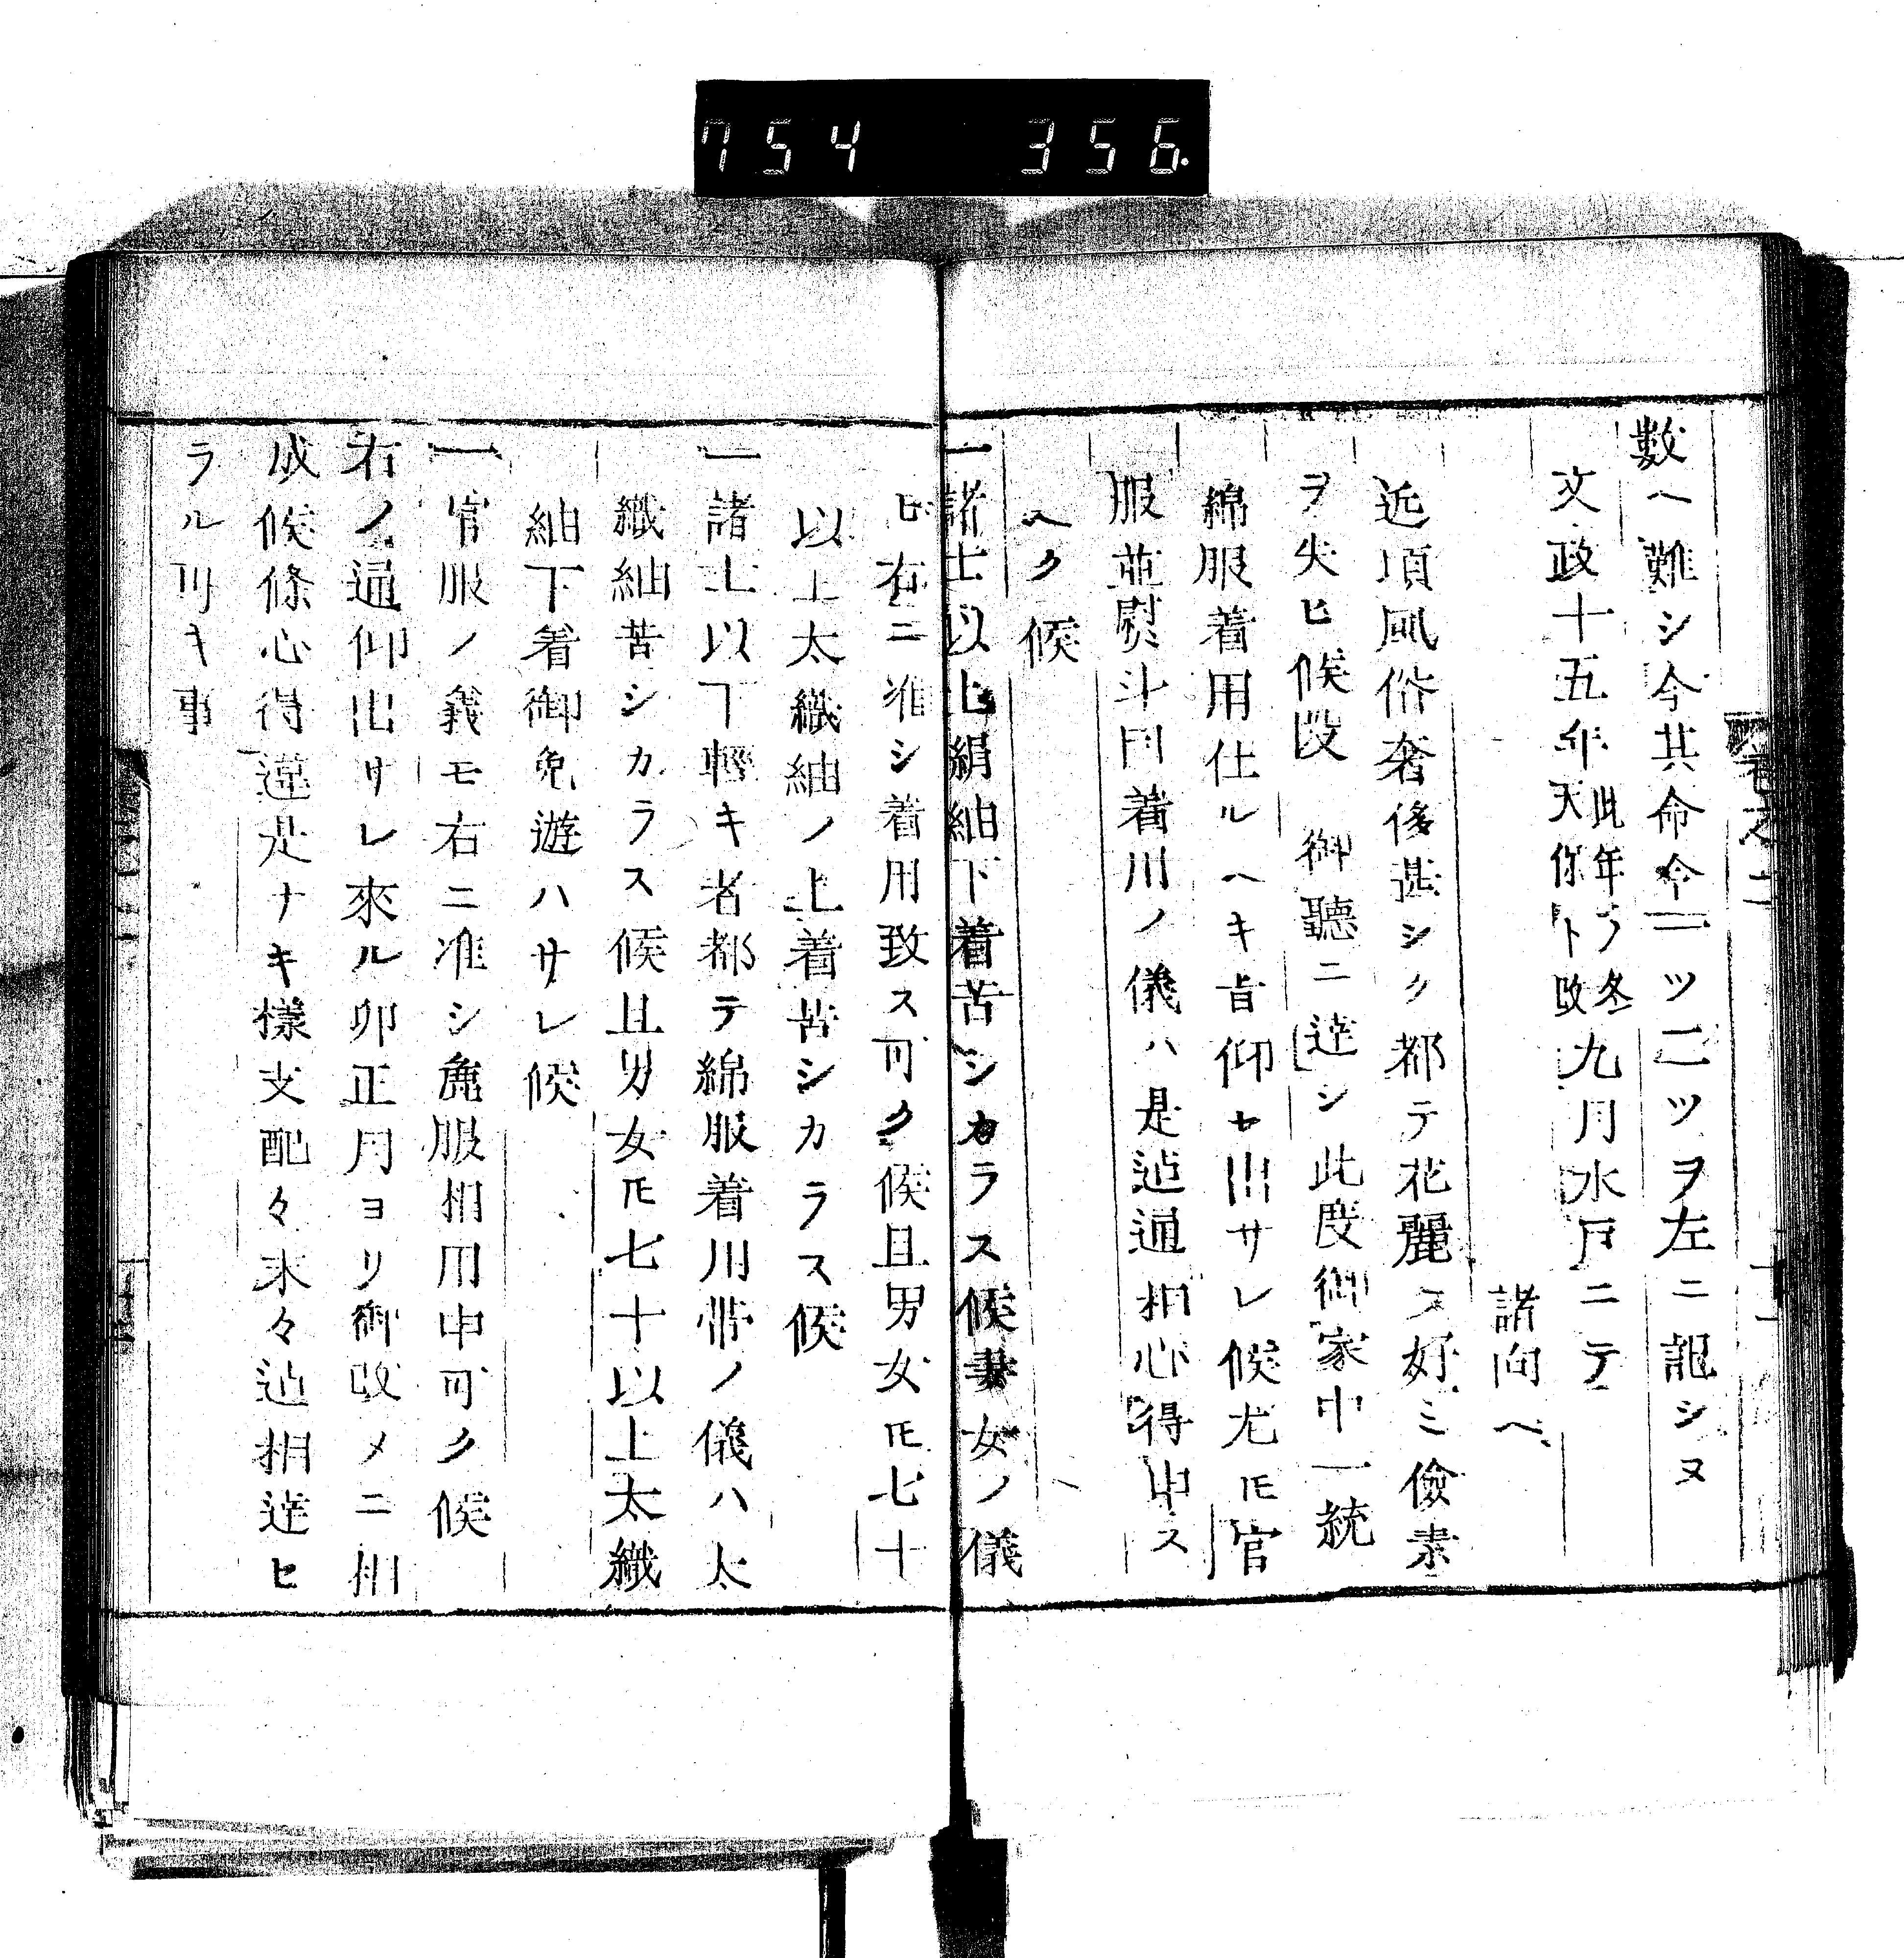 754 356
數ヘ難シ今其命令一ツ二ツヲ左ニ記シヌ
文政十五年此年ノ冬天保ト改九月水戸ニテ
諸向ヘ
近頃風俗奢侈甚シク都テ花麗ヲ好ミ儉素
ヲ失ヒ候段 御聽ニ達シ此度御家中一統
綿服着用仕ルヘキ旨仰セ出サレ候尤𪜈官
服並熨斗目着用ノ儀ハ是迠通相心得申ス
ヘク候
一諸士以上絹紬下着苦シカラス候妻女ノ儀
モ右ニ准シ着用致ス可ク候且男女𪜈七十
以上太織紬ノ上着苦シカラス候
一諸士以下輕キ者都テ綿服着用帶ノ儀ハ太
織紬苦シカラス候且男女𪜈七十以上太織
紬下着御免遊ハサレ候
一官服ノ義モ右ニ准シ麁服相用申可ク候
右ノ通仰出サレ來ル卯正月ヨリ御改メニ相
成候條心得違是ナキ樣支配々末々迠相達ヒ
ラル可キ事
卷之二
十一